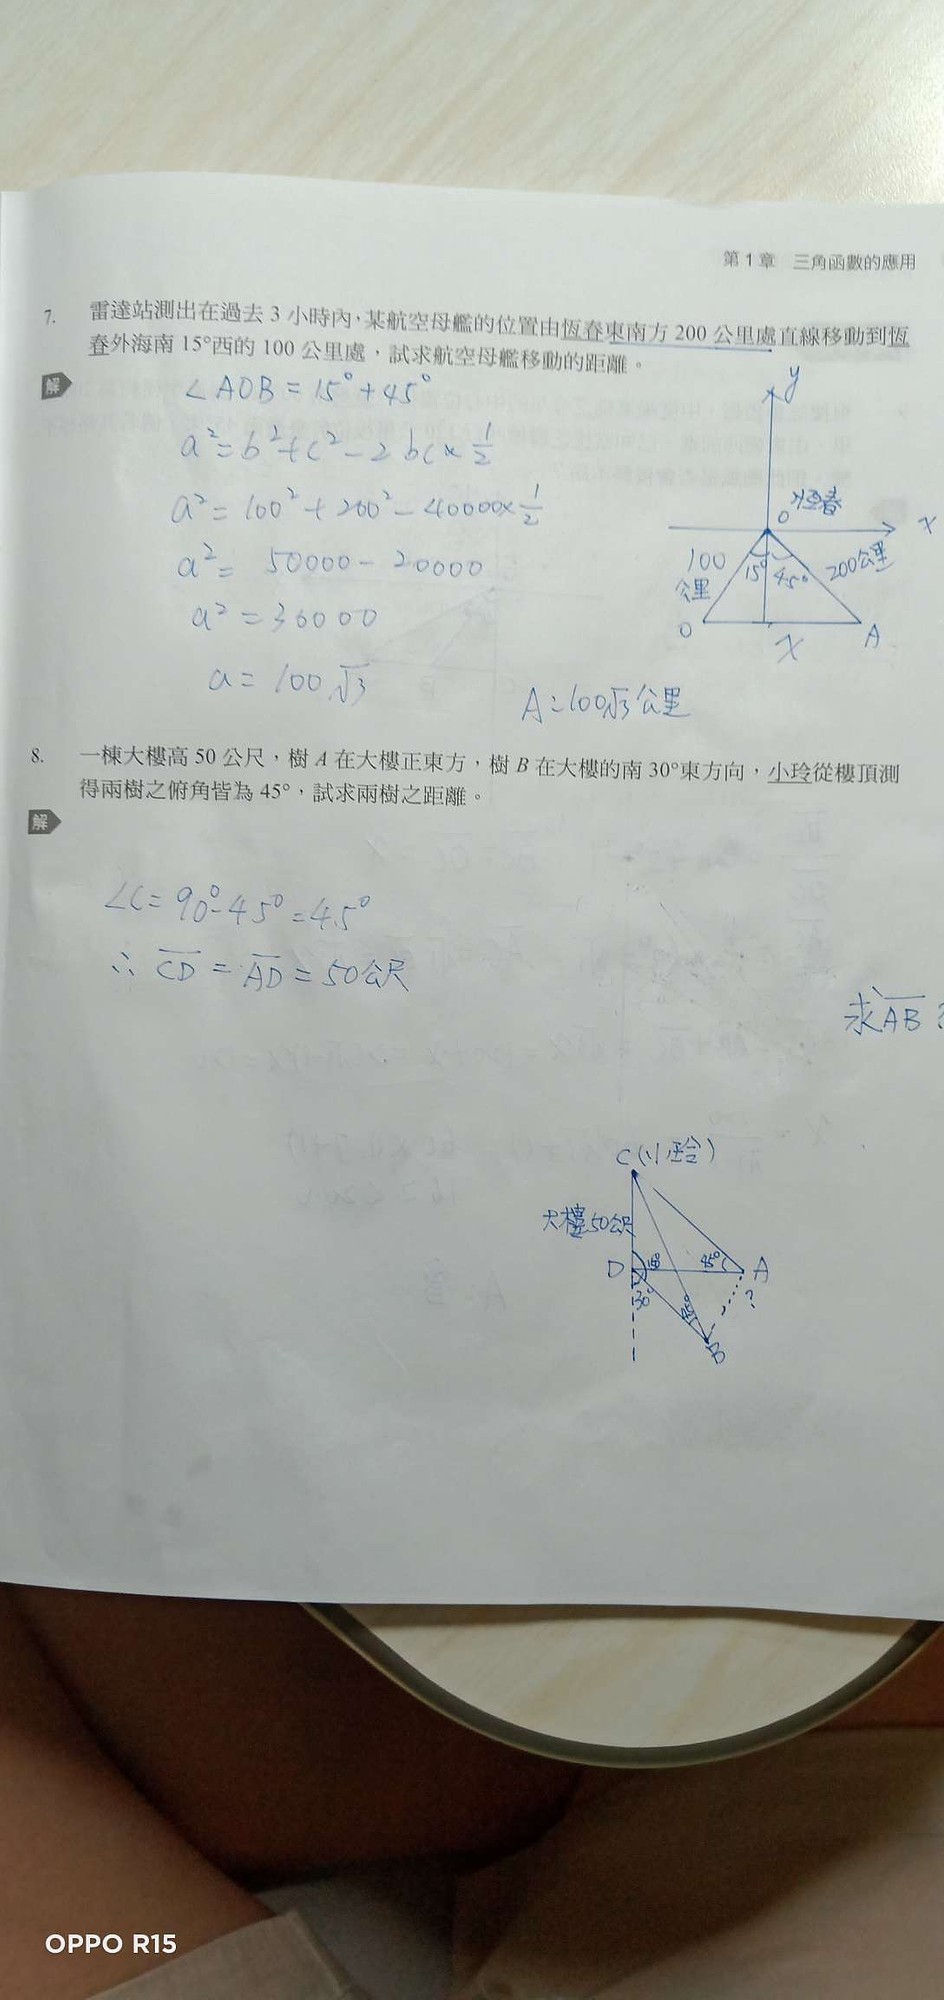 第1章 三角函數的應用
7. 雷達站測出在過去 3 小時內，某航空母艦的位置由恆春東南方 200 公里處直線移動到恆
春外海南 15°西的 100 公里處，試求航空母艦移動的距離。
解
∠AOB = 15° + 45°
a² = b² + c² - 2bc × 1/2
a² = 100² + 200² - 40000 × 1/2
a² = 50000 - 20000
a² = 30000
a = 100√3
y
x
O 恆春
100
公里
15°
45°
200公里
O
x
A
A = 100√3 公里
8. 一棟大樓高 50 公尺，樹 A 在大樓正東方，樹 B 在大樓的南 30°東方向，小玲從樓頂測
得兩樹之俯角皆為 45°，試求兩樹之距離。
解
∠C = 90° - 45° = 45°
∴ CD = AD = 50公尺
求AB?
C(小玲)
大樓50公尺
D
45°
A
30°
?
B
OPPO R15